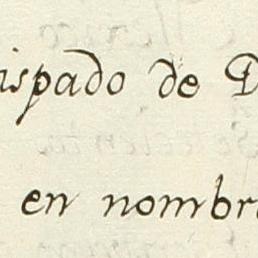 ispado de D
en nombr